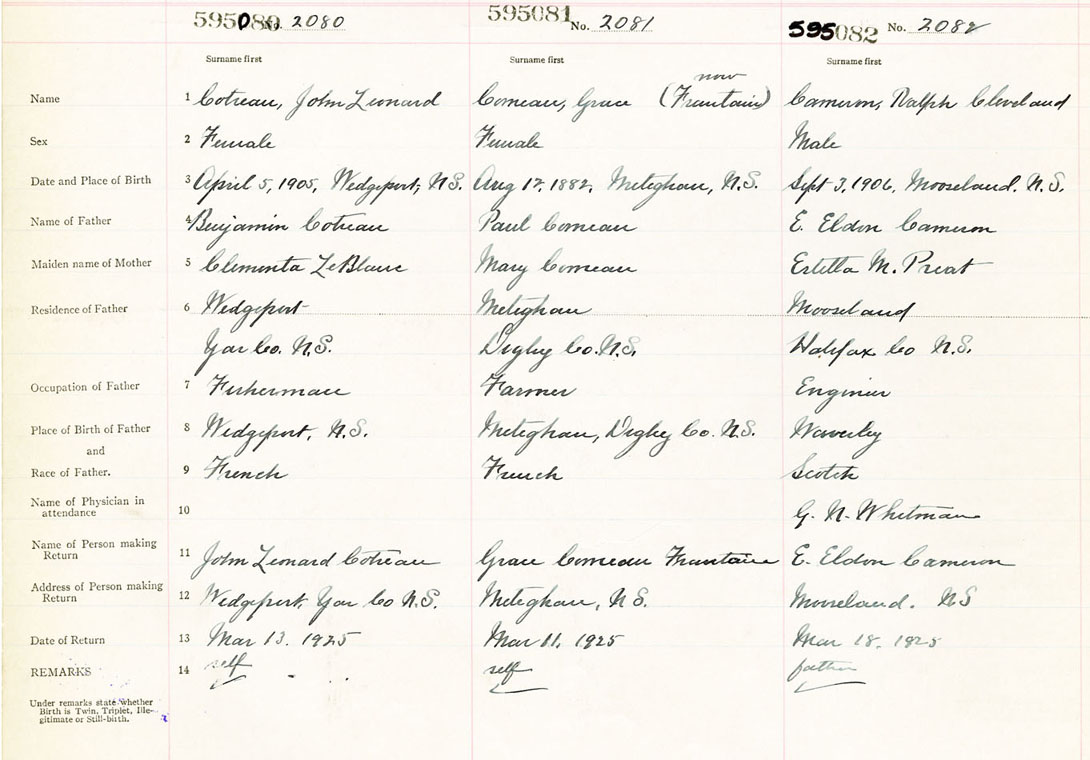 595080 No. 2080 595081 No. 2081 595082 No. 2082
Surname first Surname first Surname first
now
Name 1 Cotreau, John Leonard Comeau, Grace (Frautain) Cameron, Ralph Cleveland
Sex 2 Female Female Male
Date and Place of Birth 3 April 5, 1905, Wedgeport, N.S. Aug 12, 1882, Meteghan, N.S. Sept 3, 1906, Mooseland. N.S.
Name of Father 4 Benjamin Cotreau Paul Comeau E. Eldon Cameron
Maiden name of Mother 5 Clementa LeBlanc Mary Comeau Estella M. Preat
Residence of Father 6 Wedgeport Meteghan Mooseland
Yar Co. N.S. Digby Co. N.S. Halifax Co N.S.
Occupation of Father 7 Fisherman Farmer Engineer
Place of Birth of Father 8 Wedgeport, N.S. Meteghan, Digby Co. N.S. Waverley
and
Race of Father. 9 French French Scotch
Name of Physician in
attendance 10 G. N. Whitman
Name of Person making
Return 11 John Leonard Cotreau Grace Comeau Frautain E. Eldon Cameron
Address of Person making
Return 12 Wedgeport, Yar Co N.S. Meteghan, N.S. Mooseland. NS
Date of Return 13 Mar 13. 1925 Mar 11. 1925 Mar 18. 1925
REMARKS 14 self self father
Under remarks state whether
Birth is Twin, Triplet, Ille-
gitimate or Still-birth.